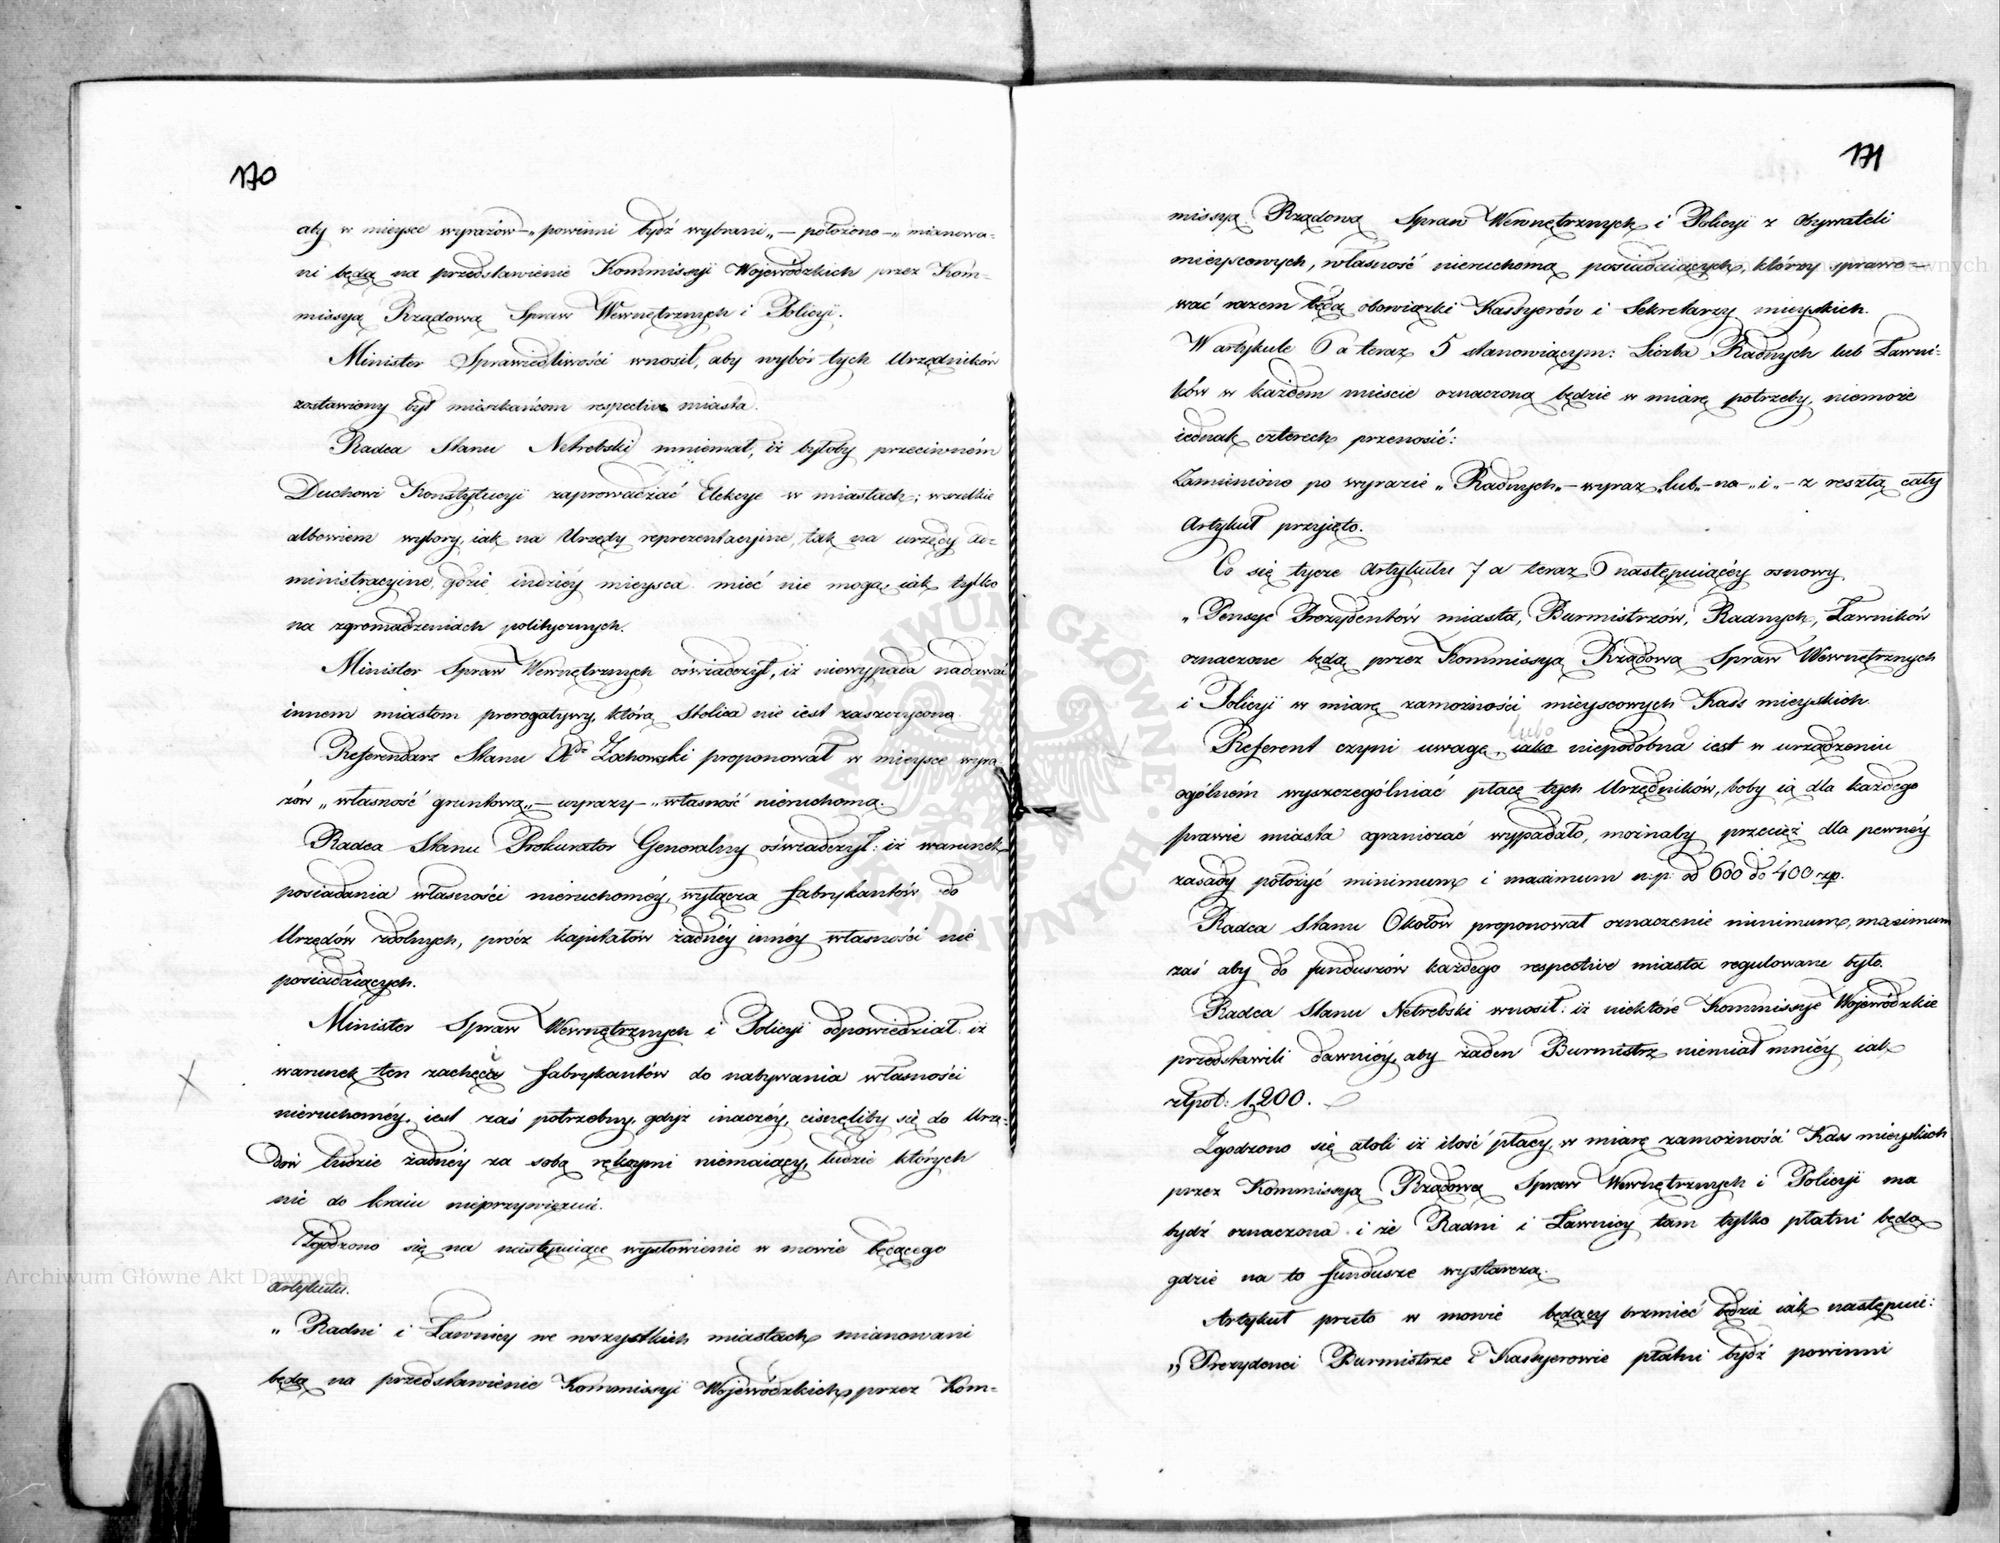 170
aby w mieysce wyrazów „powinni bydź wybrani„ — położono — „mianowa-
ni będą na przedstawienie Kommissyi Wojewódzkich przez Kom-
missyą Rządową Spraw Wewnętrznych i Policyi.
Minister Sprawiedliwości wnosił, aby wybór tych Urzędników
zostawiony był mieszkańcom respective miasta.
Radca Stanu Netrebski mniemał, iż byłoby przeciwném
Duchowi Konstytucyi zaprowadzać Elekcye w miastach; wszelkie
albowiem wybory, iak na Urzędy reprezentacyine, tak na urzędy ad-
ministracyine, gdzie indziéy mieysca mieć nie mogą, iak tylko
na zgromadzeniach politycznych.
Minister Spraw Wewnętrznych oświadczył, iż niewypada nadawać
innem miastom prerogatywy, którą Stolica nie iest zaszczycona.
Referendarz Stanu Xdz Zochowski proponował w mieysce wyra-
zów „własność gruntową„ — wyrazy — „własność nieruchomą.
Radca Stanu Prokurator Generalny oświadczył: iż warunek
posiadania własności nieruchoméy, wyłącza fabrykantów do
Urzędów zdolnych, prócz kapitałów żadnéy innéy własności nie
posiadaiących.
Minister Spraw Wewnętrznych i Policyi odpowiedział iż
warunek ten zachęca fabrykantów do nabywania własności
nieruchoméy, iest zaś potrzebny, gdyż inaczéy, cisnęliby się do Urzę-
dów ludzie żadnéy za sobą rękoymi niemaiący, ludzie których
nic do kraiu nieprzywięzuie.
Zgodzono się na następuiące wysłowienie w mowie będącego
Artykułu.
„ Radni i Ławnicy we wszystkich miastach mianowani
będą na przedstawienie Kommissyi Wojewódzkich, przez Kom-
171
missyą Rządową Spraw Wewnętrznych i Policyi z Obywateli
mieyscowych, własność nieruchomą posiadaiących, którzy sprawo-
wać razem będą obowiązki Kassyerów i Sekretarzy mieyskich.
W artykule 6 a teraz 5 stanowiącym: Liczba Radnych lub Ławni-
ków w każdem mieście oznaczoną będzie w miarę potrzeby, niemoże
iednak czterech przenosić:
Zamieniono po wyrazie „Radnych„ — wyraz „lub„ — na — „i„ — z resztą cały
Artykuł przyjęto.
Co się tycze Artykułu 7 a teraz 6 następuiącéy osnowy,
„Pensye Prezydentów miasta, Burmistrzów, Radnych, Ławników
oznaczone będą przez Kommissyą Rządową Spraw Wewnętrznych
i Policyi w miarę zamożności mieyscowych Kass mieyskich.
lubo
Referent czyni uwagę, iako niepodobna iest w urządzeniu
ogólném wyszczególniać płacę tych Urzędników, boby ią dla każdego
prawie miasta ograniczać wypadało, możnaby przecież dla pewnéy
zasady położyć minimum i maximum n:p: od 600 do 400 zp.
Radca Stanu Okołów proponował oznaczenie minimum, maximum
zaś aby do funduszów każdego respective miasta regulowane było.
Radca Stanu Netrebski wnosił: iż niektóre Kommissye Wojewódzkie
przedstawili dawniéy, aby żaden Burmistrz niemiał mniéy iak
złpol: 1,200.
Zgodzono się atoli iż ilość płacy, w miarę zamożności Kass mieyskich
przez Kommissyą Rządową Spraw Wewnętrznych i Policyi ma
bydź oznaczona i że Radni i Ławnicy tam tylko płatni będą
gdzie na to fundusze wystarczą.
Artykuł przeto w mowie będący brzmieć będzie iak następuie:
„Prezydenci Burmistrze i Kassyerowie płatni bydź powinni
Archiwum Główne Akt Dawnych
ARCHIWUM GŁÓWNE AKT DAWNYCH